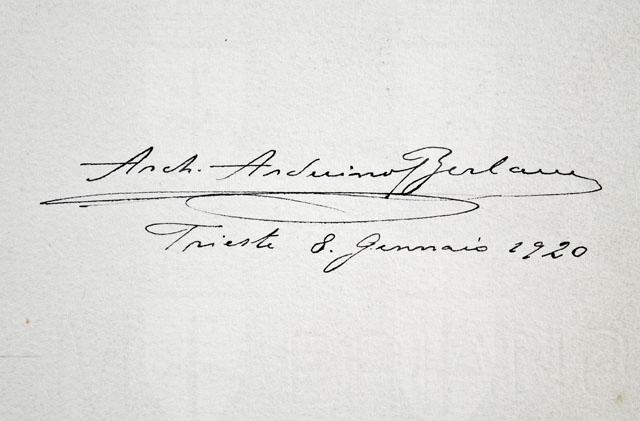 Arch. Arduino Berlam
Trieste 8. Gennaio 1920